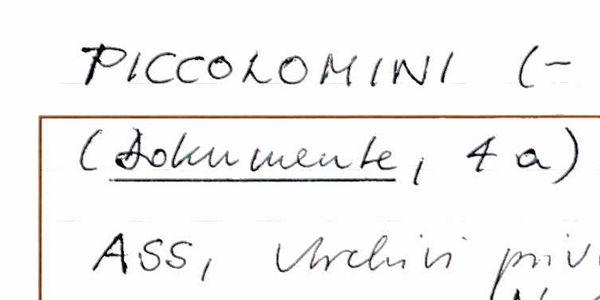 PICCOLOMINI (-
(Dokumente, 4a)
ASS, Archivi priv